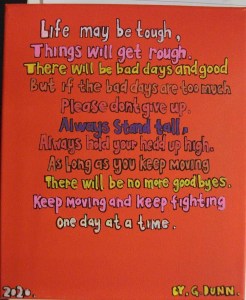 Life may be tough,
Things will get rough.
There will be bad days and good
But if the bad days are too much
Please dont give up.
Always stand tall,
Always hold your hedd up high.
As long as you keep moving
There will be no more goodbyes.
Keep moving and keep fighting
One day at a time.
2020. BY. G. DUNN.